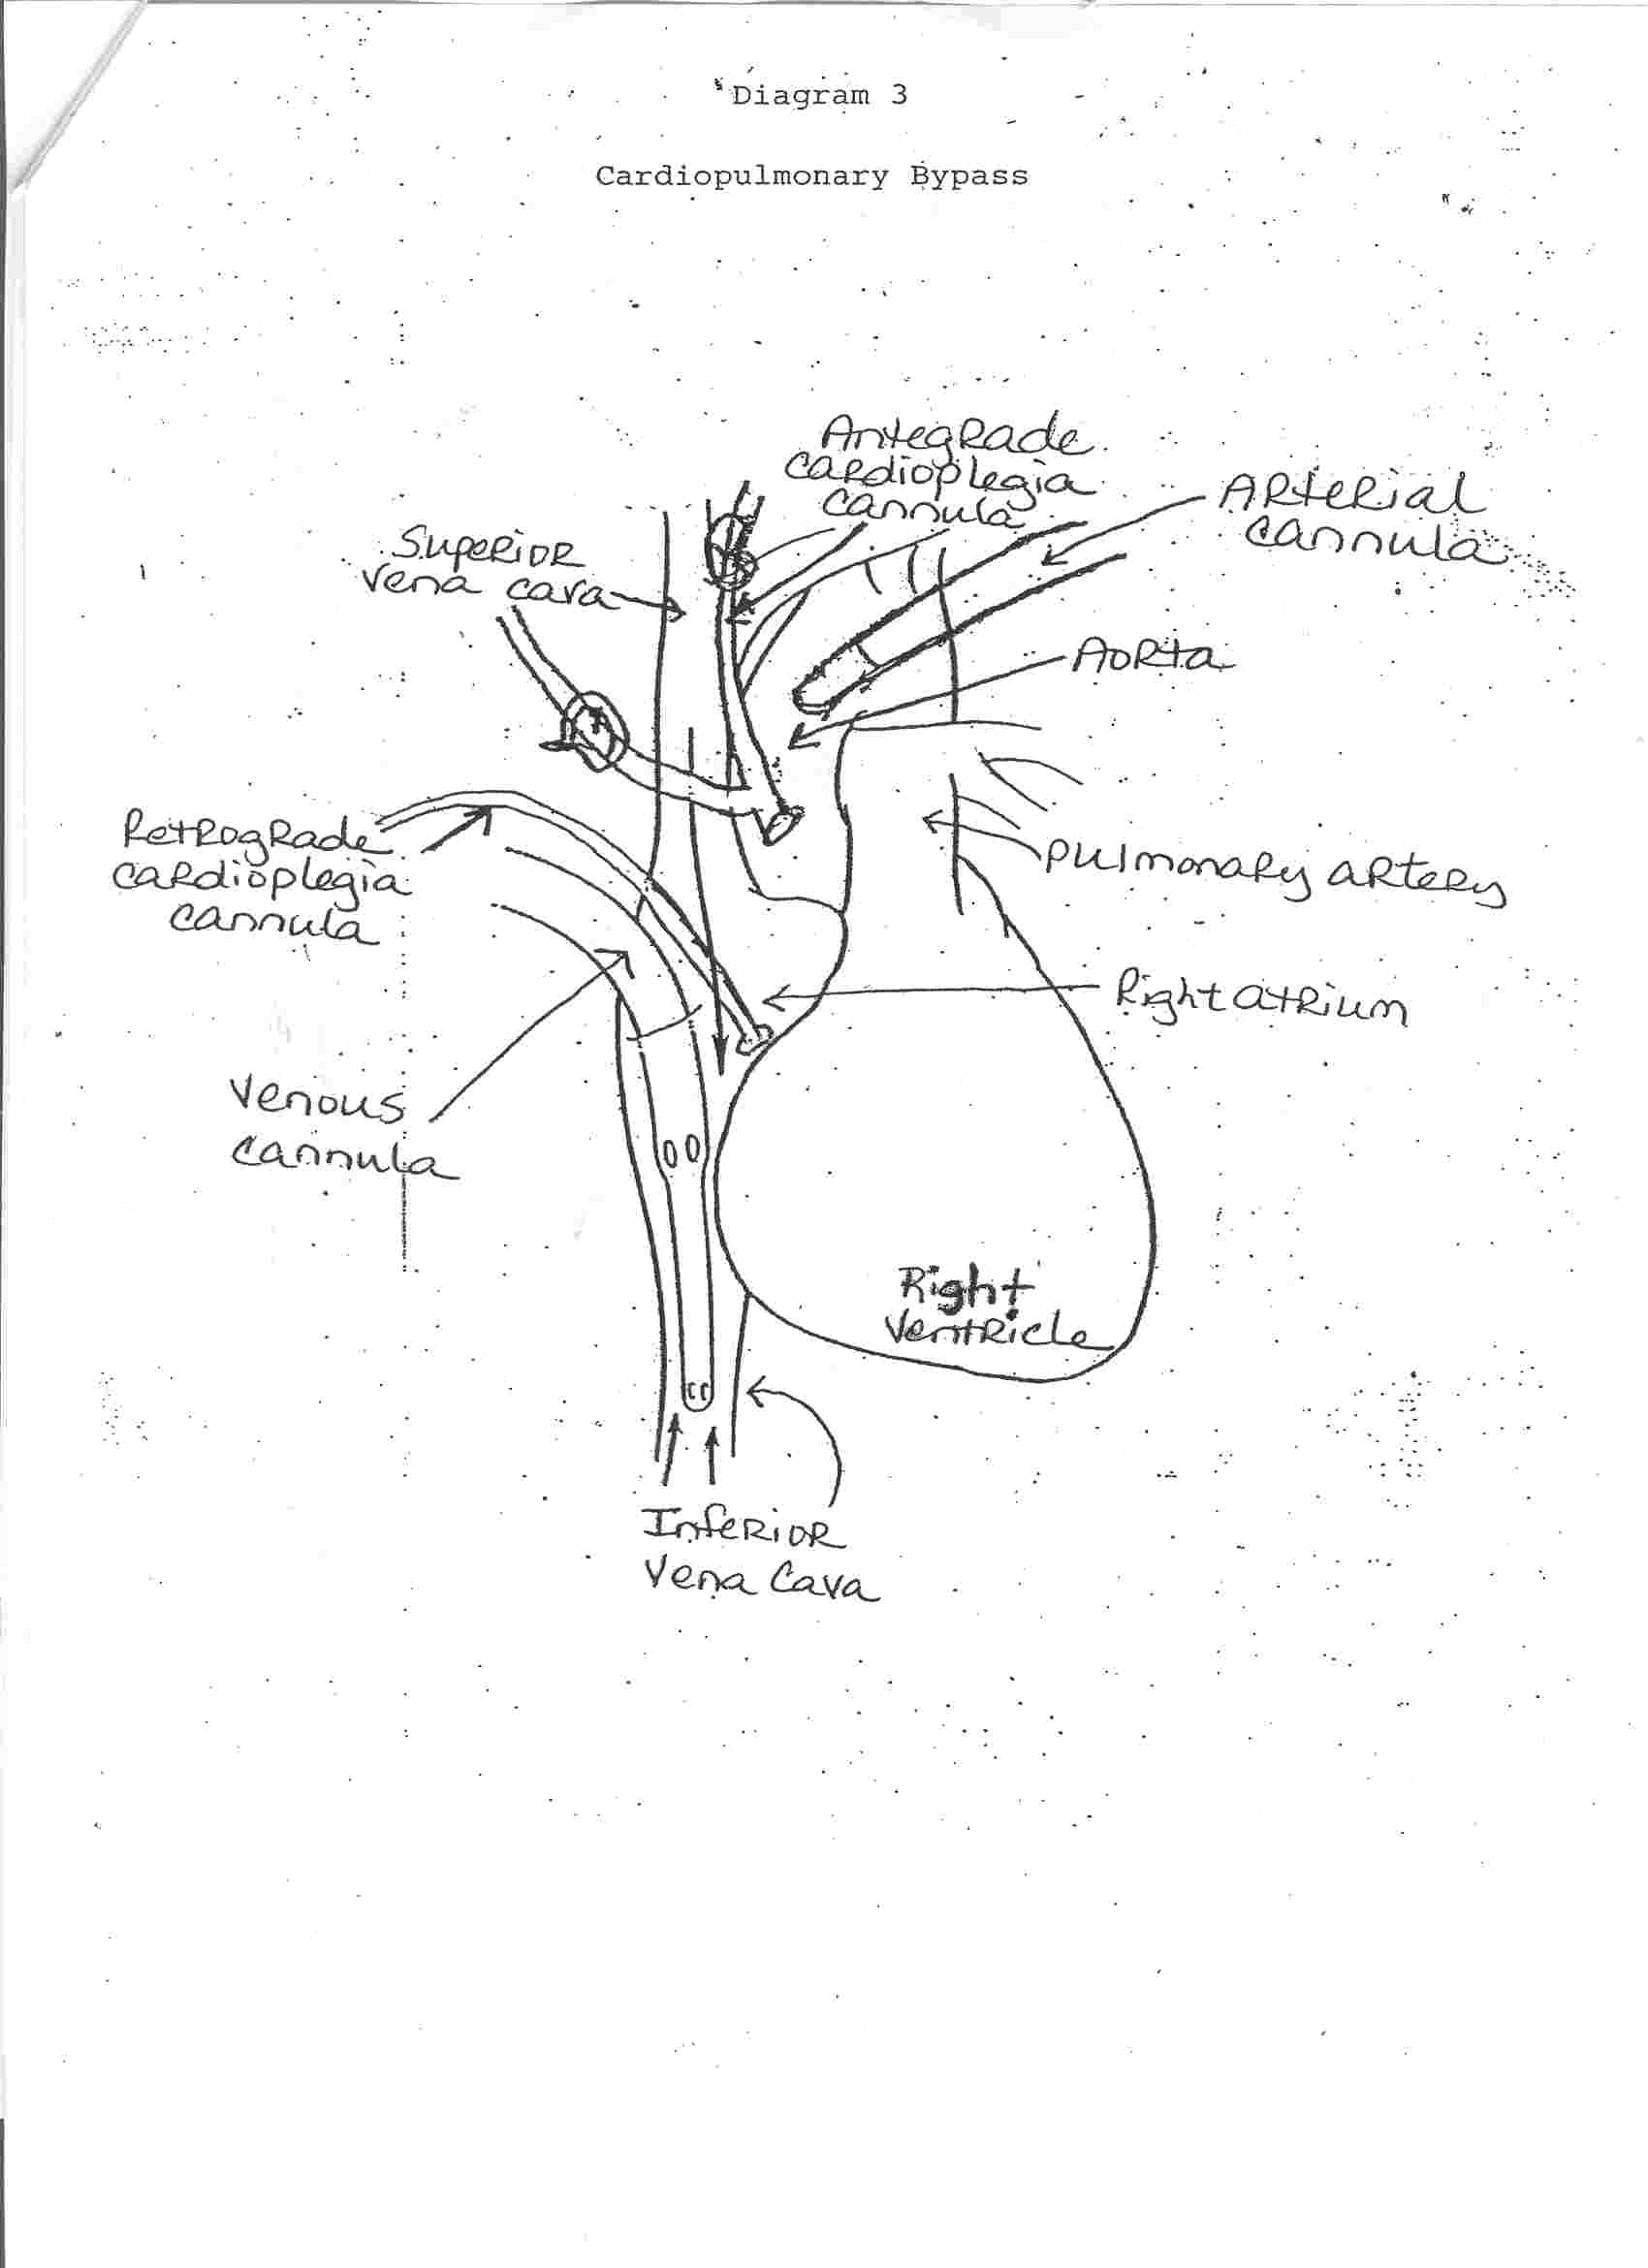 Diagram 3
Cardiopulmonary Bypass
Antegrade
cardioplegia
cannula
Arterial
cannula
Superior
vena cava
Aorta
Retrograde
cardioplegia
cannula
pulmonary artery
Right atrium
Venous
cannula
Right
ventricle
Inferior
Vena Cava